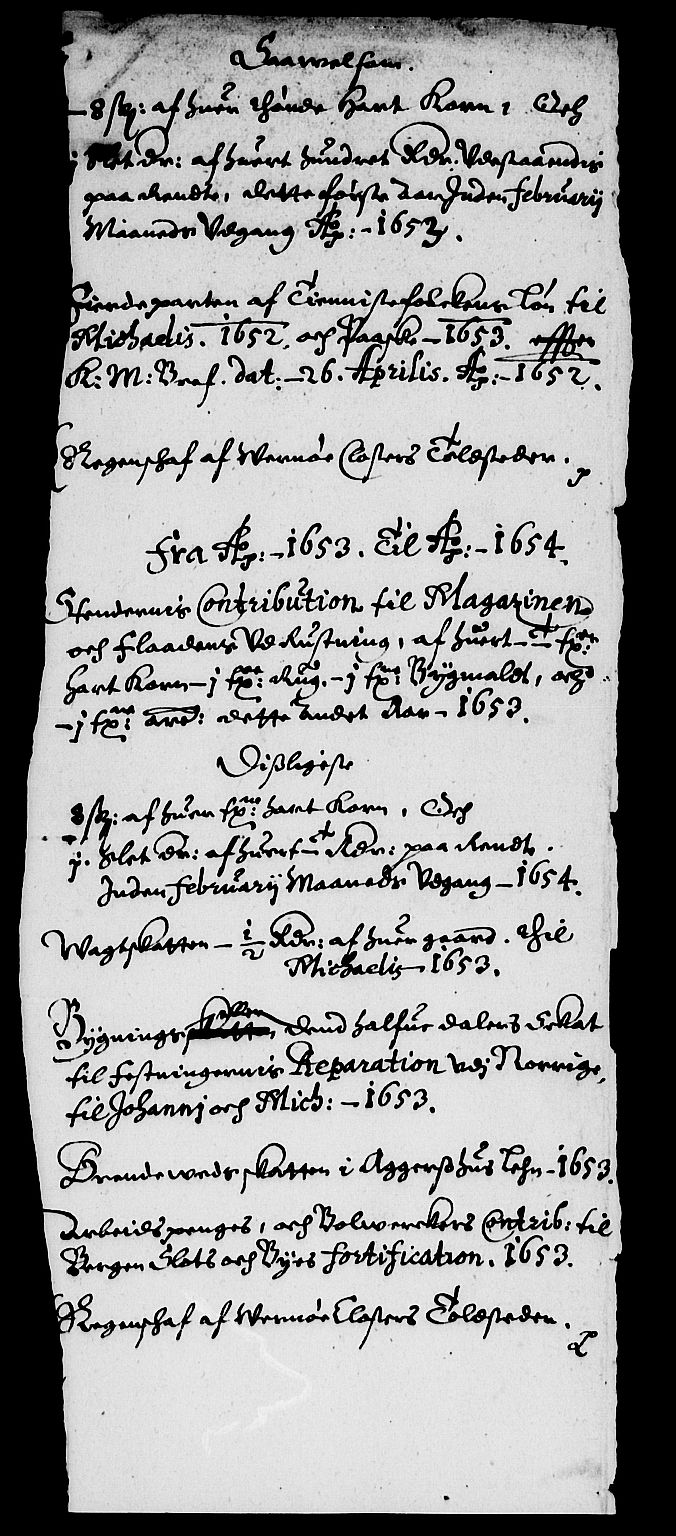 Saauelsom.
- 8 sk: af huer thønde Hart Korn, Och
j Slet dr: af huert hundret Rdr. Vdestaaendis
paa Rendte, dette første Aar Inden februarij
Maaneds Vdgang Ao: - 1653.
Fierdeparten af Tiennistefolckens Løn til
Michaelis. 1652. och Paaske - 1653. effter
K: M: Bref. dat: - 26. Aprilis. Ao: - 1652.
Regenschaf af Wernøe Closters Toldsteder.
Fra Ao: - 1653. Til Ao: - 1654.
Stendernis Contribution til Magazinen
och Flaadens Vdrustning, af huert
Hart Korn - j Rug. - j Bygmaldt, och
- j dette andet Aar - 1653.
Dißligeste
8 sk: af huer hart Korn, Och
j. Slet dr: af huert Rdr: paa Rendte.
Inden februarij Maaneds Vdgang - 1654.
Wagtskatten - 1/2 Rdr: af huer gaard. thil
Michaelis - 1653.
Bygnings dend halfue dalers Skat
til Festningernis Reparation vdj Norrige,
til Johannj och Mich: - 1653.
Brendewedsskatten i Aggerßhus Lehn - 1653.
Arbeidspenges, och Bolwerckers Contrib: til
Bergen Slots och Byes fortification. 1653.
Regenschaf af Wernøe Closters Toldsteder.